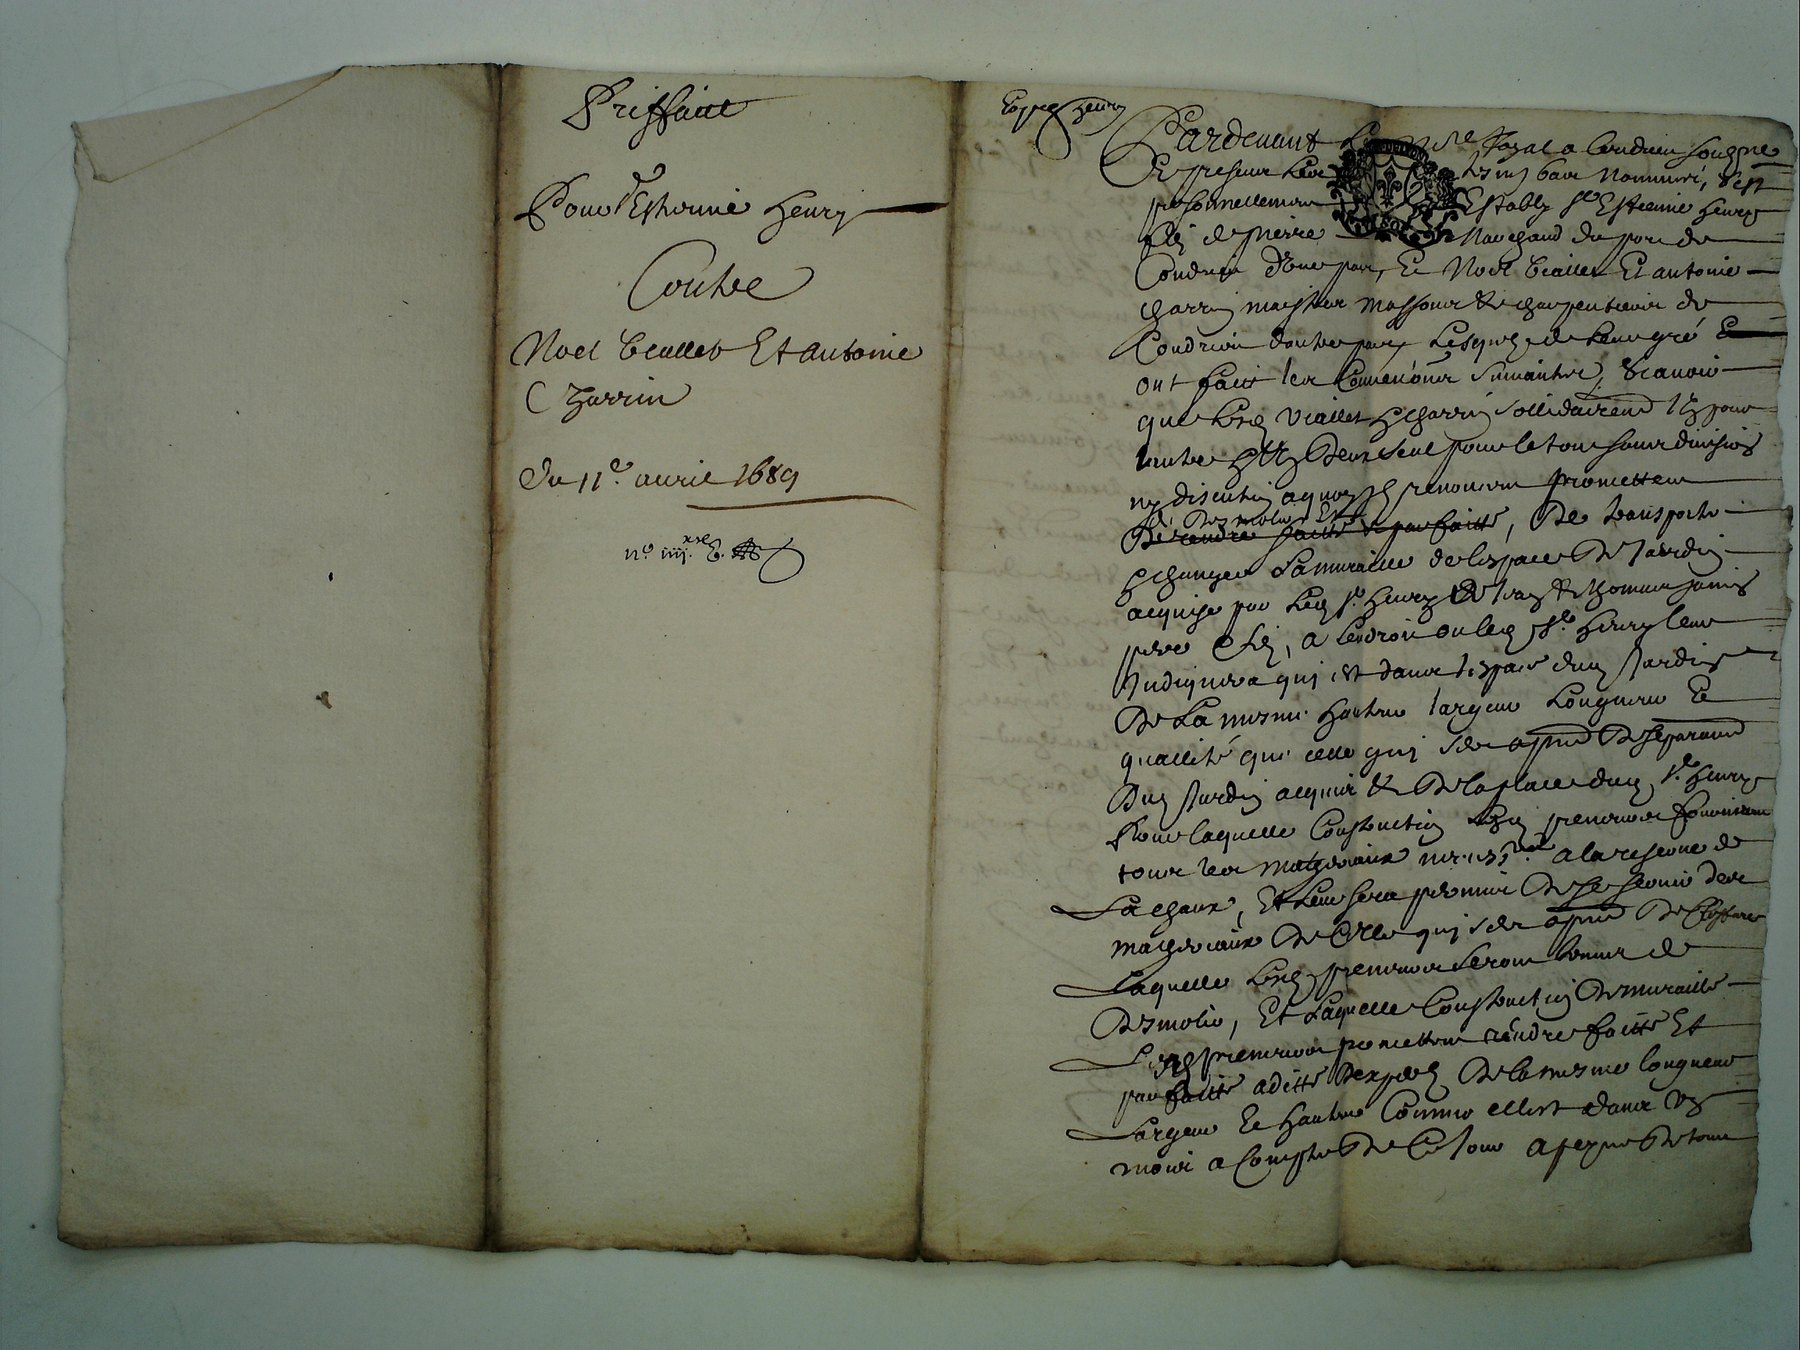 Prisfaict
Pour Sr Estienne Henry
Contre
Noel Viallet Et Antoine
Charrin
du 11e. auril 1689
Pardeuant Le Nre Royal a Condrieu soubzne
Et presens Les tesmoins bas Nommés, s'est
personnellement Estably sr Estienne Henry
filz de pierre Marchand du port de
Condrieu d'une part, Et Noel Viallet Et antoine
Charrin maistres massons & charpentiers de
Condrieu d'autre part, Lesquelz de leur gré
ont faict les Conuentions suiuantes, scauoir
que Lesd Viallet & Charrin sollidairemt l'un pour
l'autre & un d'eux seul pour le tout sans diuision
ny discution a quoy ilz renoncent promettent
De desmolir Et
De rendre faitte & parfaitte, De transporter
& changer La muraille de l'espace De Jardin
acquise par Led sr. Henry de &  Thomas Jamis
pere & filz, a l'endroit ou led sr Henry leur
Indiquera qui est dans l'espace dud Jardin
De La mesme hauteur largeur Longueur Et
quallité que celle qui est a pnt De separaon
Dud Jardin acquis & De la place dud sr. Henry
Pour laquelle Construction Lesd preneurs fourniront
tous les matheriaux necessres. a la reserue de
La chaux, Et Leur sera permis De se seruir des
matheriaux De Celle qui est a pnt De Closture
Laquelle Lesd preneurs seront tenus de
Desmolir, Et Laquelle Construction De muraille
Lesd preneurs promettent rendre faitte Et
parfaitte a ditte D'expertz De la mesme longueur
Largeur Et hauteur Comme ell'est dans un
mois a Compter De Ce Jour a peyne De tous